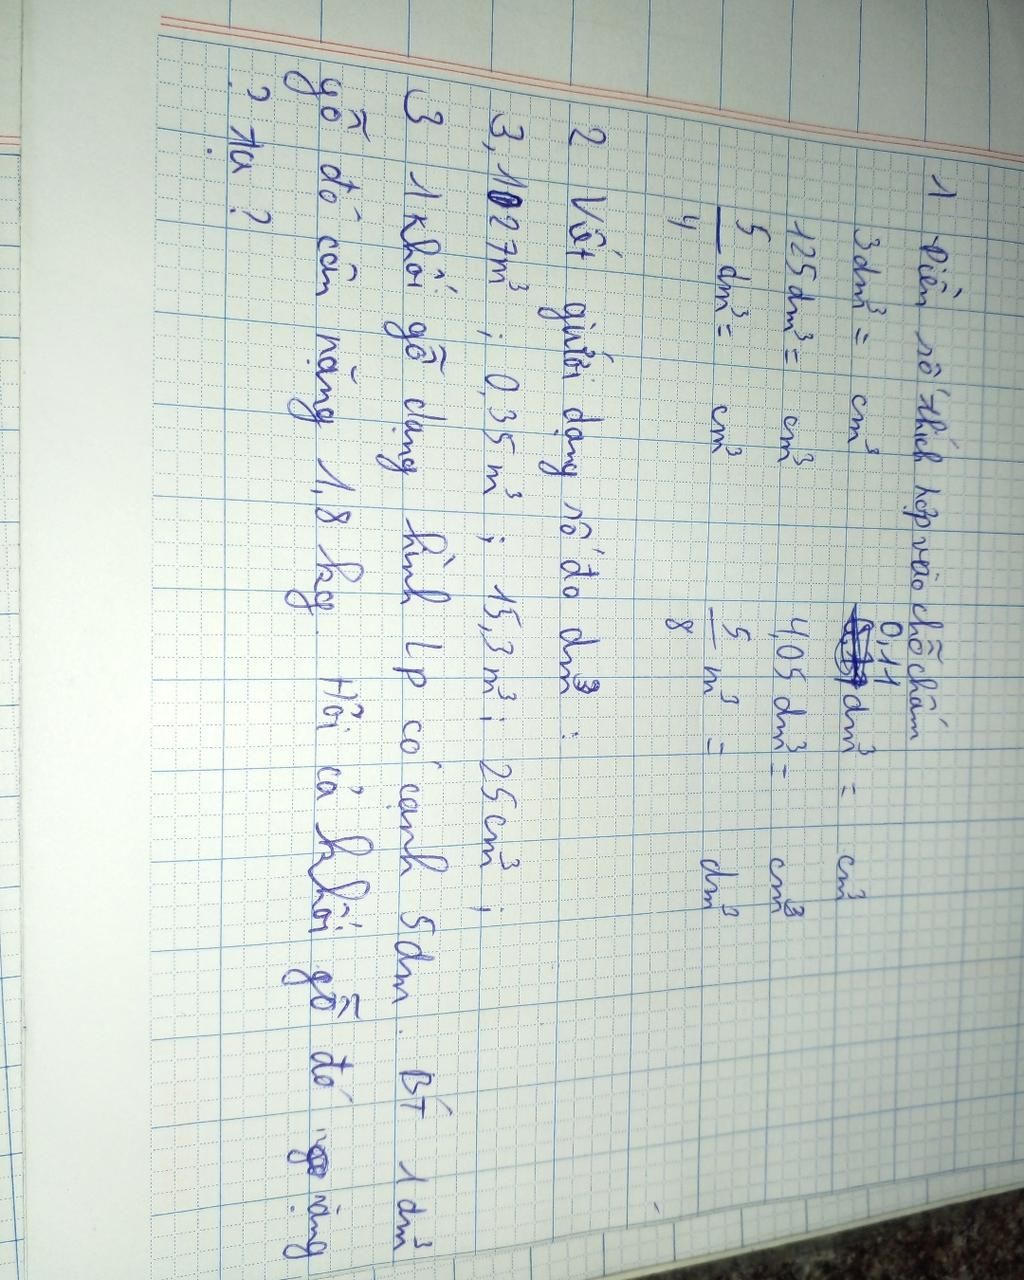 1 Điền số thích hợp vào chỗ chấm
3dm³ = cm³ 0,11 dm³ = cm³
125dm³ = cm³ 4,05 dm³ = cm³
5/4 dm³ = cm³ 5/8 m³ = dm³
2 Viết dưới dạng số đo dm³ :
3,1027m³ ; 0,35 m³ ; 15,3 m³ ; 25cm³ ;
3 1 khối gỗ dạng hình lp có cạnh 5dm. Bt 1 dm³
gỗ đó cân nặng 1,8 kg. Hỏi cả khối gỗ đó nặng
? Tạ ?